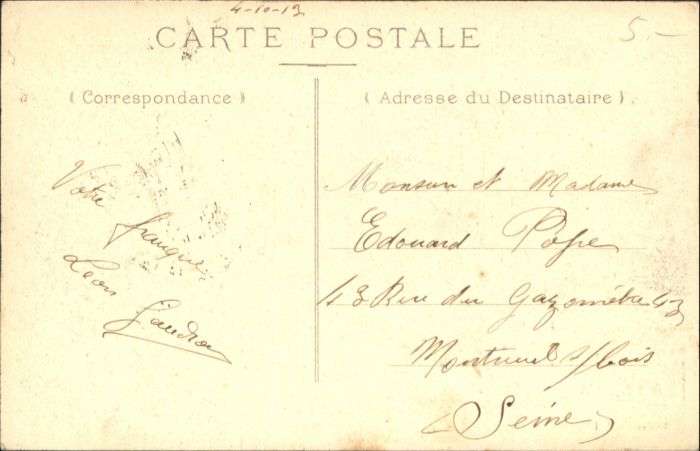 4-10-13
5-
CARTE POSTALE
(Correspondance)
(Adresse du Destinataire).
Votre
Leon
Gaudron
Monsieur et Madame
Edouard Pope
43 Rue du Gazomètre 43
Montreuil s/bois
(Seine)